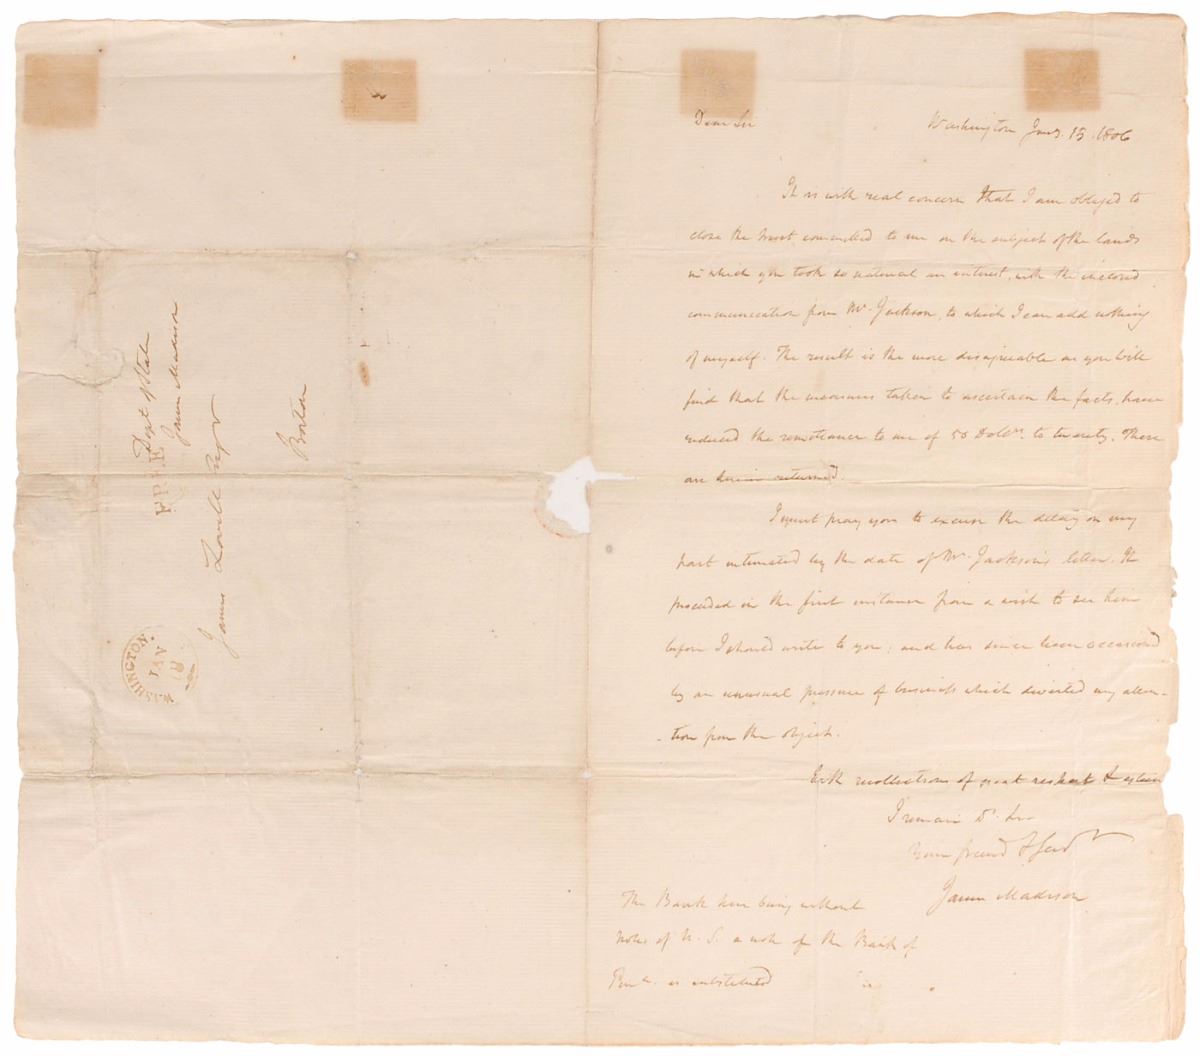 Dear Sir
Washington Jany. 15. 1806
It is with real concern that I am obliged to
close the trust committed to me on the subject of the lands
in which you took so natural an interest, with the inclosed
communication from Mr. Jackson, to which I can add nothing
of myself. The result is the more disagreeable as you will
find that the measures taken to ascertain the facts, have
reduced the remittance to me of 50 Dollrs. to twenty. These
are herein returned.
I must pray you to excuse the delay on my
part intimated by the date of Mr. Jackson's letter. It
proceeded in the first instance from a wish to see him
before I should write to you; and has since been occasioned
by an unusual pressure of business which diverted my atten-
-tion from the object.
With recollections of great respect & esteem
I remain Dr. Sir
Your friend & Servt
James Madison
The Bank here being without
notes of U. S. a note of the Bank of
Pena. is substituted
Dept of State
James Madison
FREE
James Lovell Esqr
Boston
WASHINGTON.
JAN
18